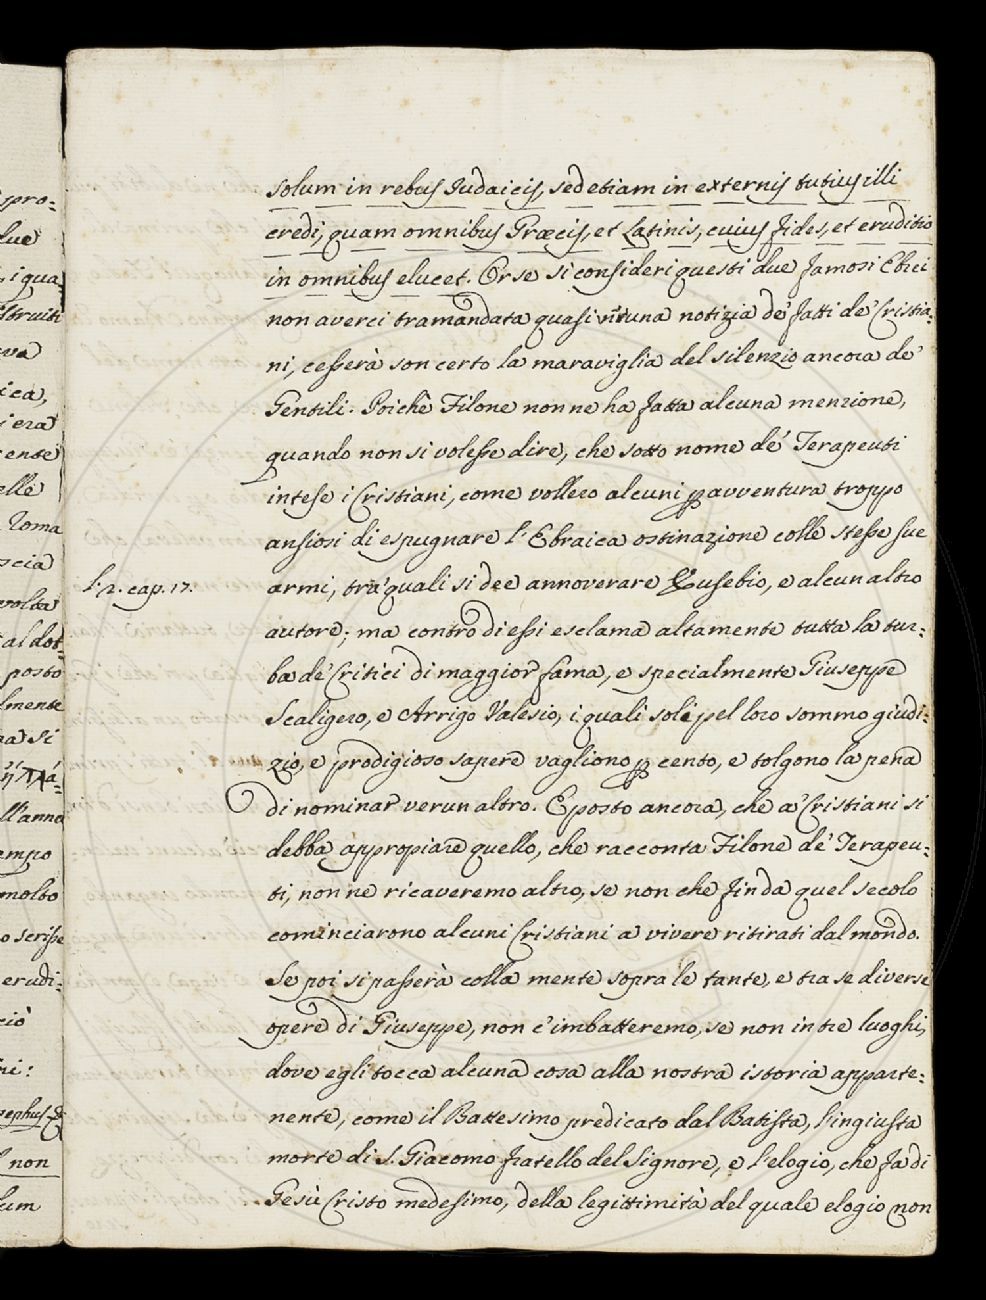 solum in rebus Judaicis, sed etiam in externis tutius illi
credi, quam omnibus Græcis, et Latinis, cuius fides, et eruditio
in omnibus elucet. Or se si consideri questi due famosi Ebrei
non averci tramandata quasi niuna notizia de' fatti de' Cristia=
ni, cesserà son certo la maraviglia del silenzio ancora de'
Gentili. Poichè Filone non ne ha fatta alcuna menzione,
quando non si volesse dire, che sotto nome de' Terapeuti
intese i Cristiani, come vollero alcuni p avventura troppo
ansiosi di espugnare l'Ebraica ostinazione colle stesse sue
l. 2. cap. 17.
armi, tra' quali si dee annoverare Eusebio, e alcun altro
autore; ma contro di essi esclama altamente tutta la tur=
ba de' Critici di maggior fama, e specialmente Giuseppe
Scaligero, e Arrigo Valesio, i quali soli pel loro sommo giudi=
zio, e prodigioso sapere vagliono p cento, e tolgono la pena
di nominar verun altro. E posto ancora, che a' Cristiani si
debba appropiare quello, che racconta Filone de' Terapeu=
ti, non ne ricaveremo altro, se non che fin da quel secolo
cominciarono alcuni Cristiani a vivere ritirati dal mondo.
Se poi si passerà colla mente sopra le tante, e tra se diverse
opere di Giuseppe, non c'imbatteremo, se non in tre luoghi,
dove egli tocca alcuna cosa alla nostra istoria apparte=
nente, come il Battesimo predicato dal Batista, l'ingiusta
morte di S. Giacomo fratello del Signore, e l'elogio, che fà di
Gesù Cristo medesimo, della legittimità del quale elogio non